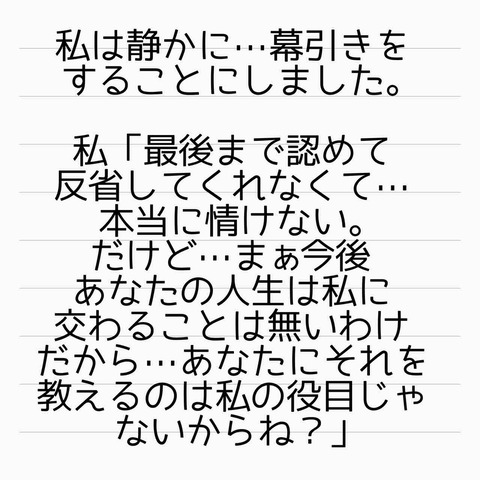 私は静かに…幕引きを
することにしました。
私「最後まで認めて
反省してくれなくて…
本当に情けない。
だけど…まぁ今後
あなたの人生は私に
交わることは無いわけ
だから…あなたにそれを
教えるのは私の役目じゃ
ないからね？」